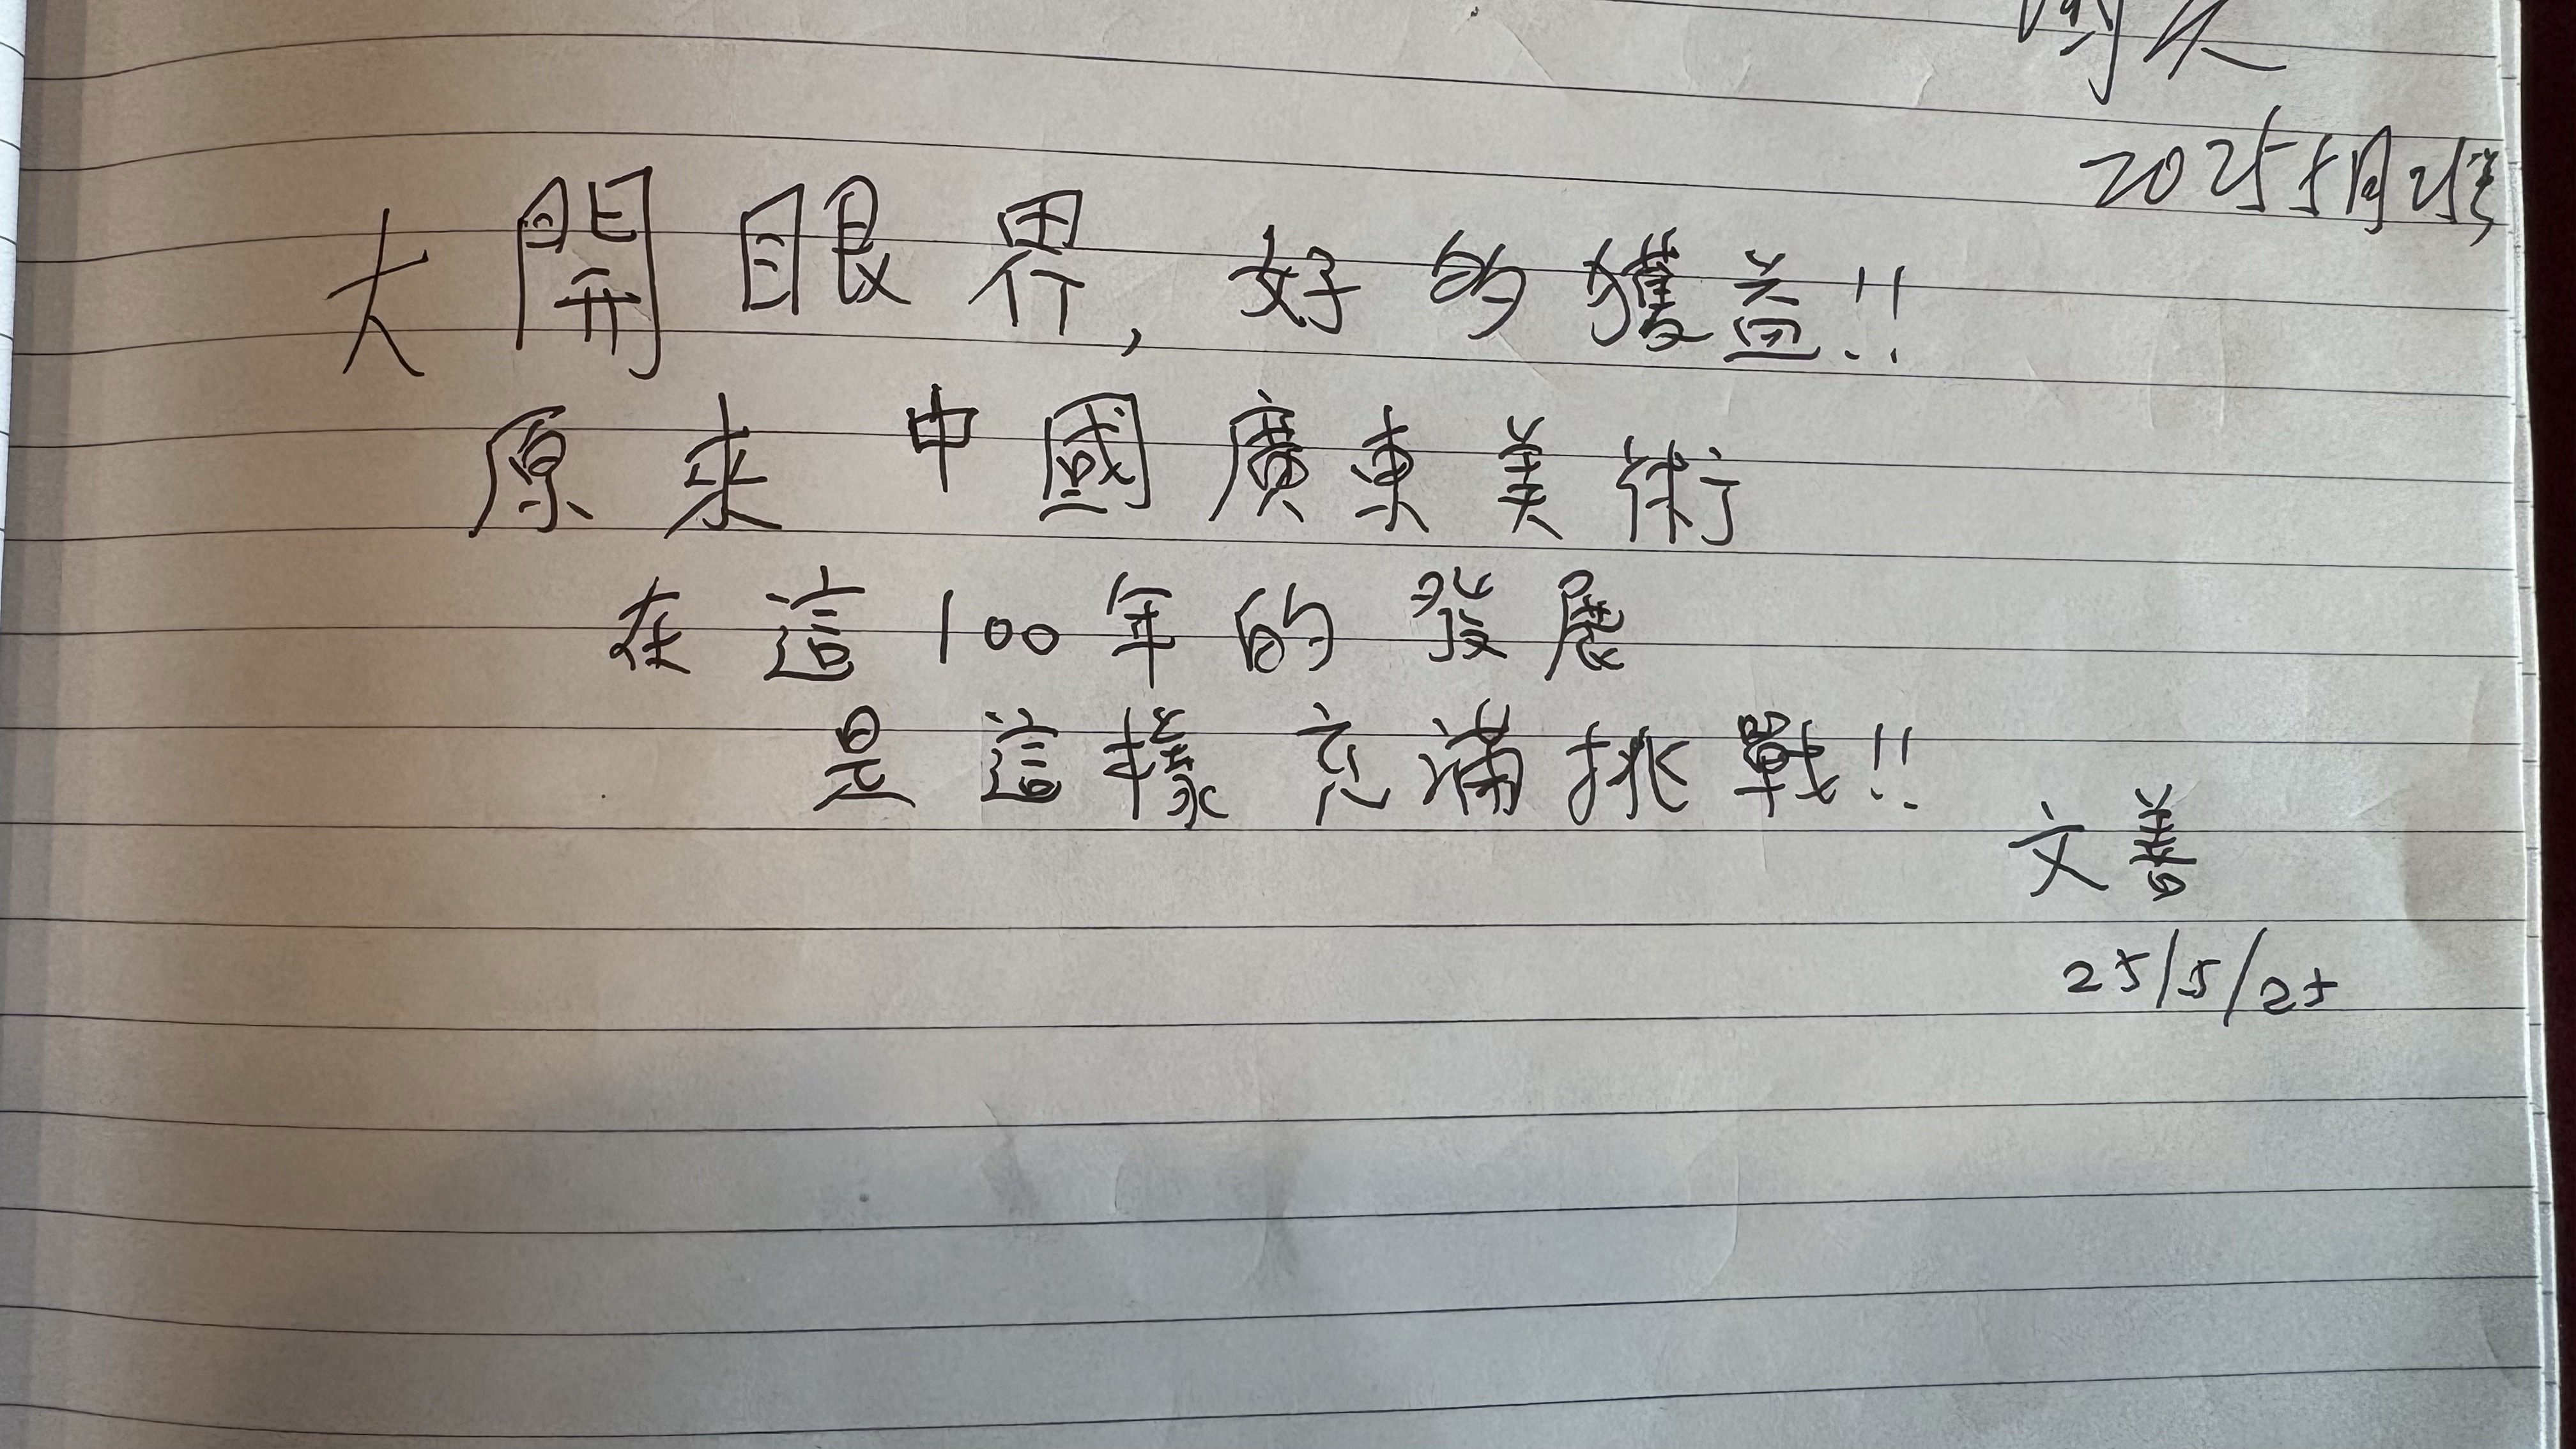 2025 5月25
大開眼界，好的獲益!!
原來中國廣東美術
在這100年的發展
是這樣充滿挑戰!!
文善
25/5/25